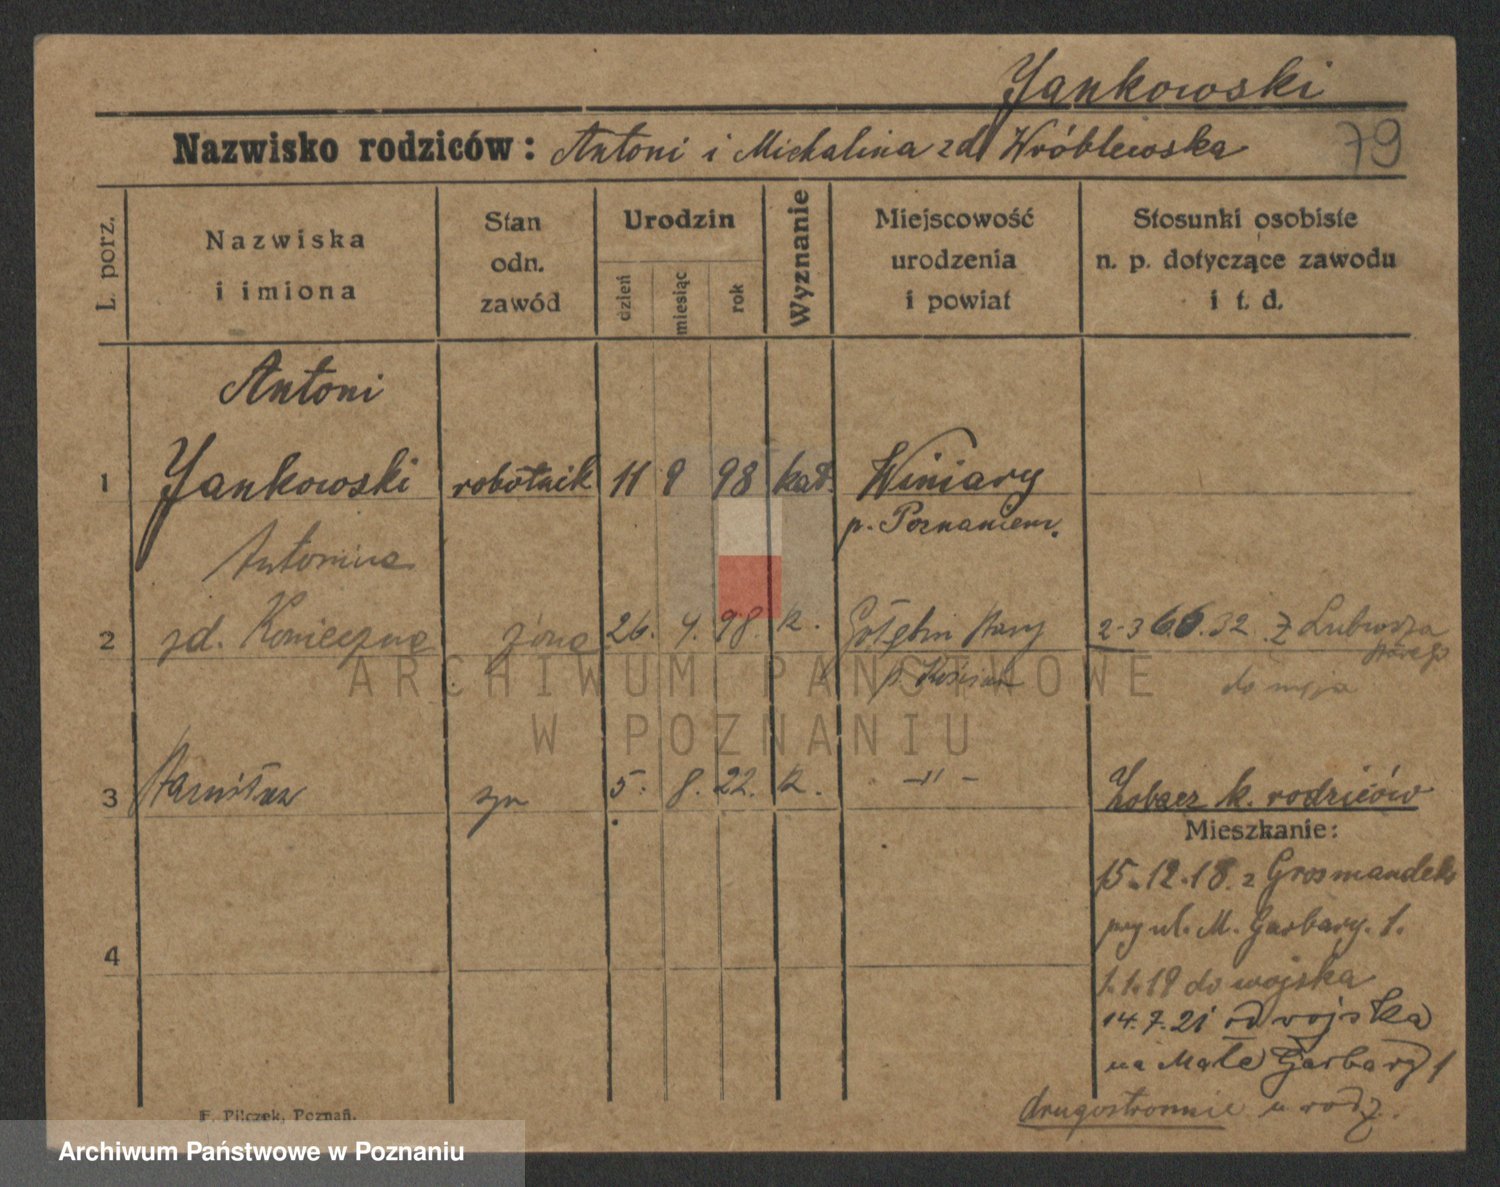 Jankowski
Nazwisko rodziców: Antoni i Michalina zd Wróblewska
79
L. porz.
Nazwiska
i imiona
Stan
odn.
zawód
Urodzin
dzień
miesiąc
rok
Wyznanie
Miejscowość
urodzenia
i powiat
Stosunki osobiste
n. p. dotyczące zawodu
i t. d.
Antoni
1 Jankowski robotnik 11 9 98 kat. Winiary
p. Poznaniem.
Antonina
2 zd. Konieczna żona 26. 4. 98. k. Gołębin Stary 32 z Lubosza
Starego
p. Kościan do męża
3 Stanisław syn 5. 8. 22. k. -"- Zobacz k. rodziców
Mieszkanie:
15.12.18. z
przy ul. M. Garbary. 1.
4
1.1.19 do wojska
14.7.21 od wojska
na Małe Garbary 1
drugostronnie u rodz.
F. Pilczek, Poznań.
ARCHIWUM PAŃSTWOWE
W POZNANIU
Archiwum Państwowe w Poznaniu